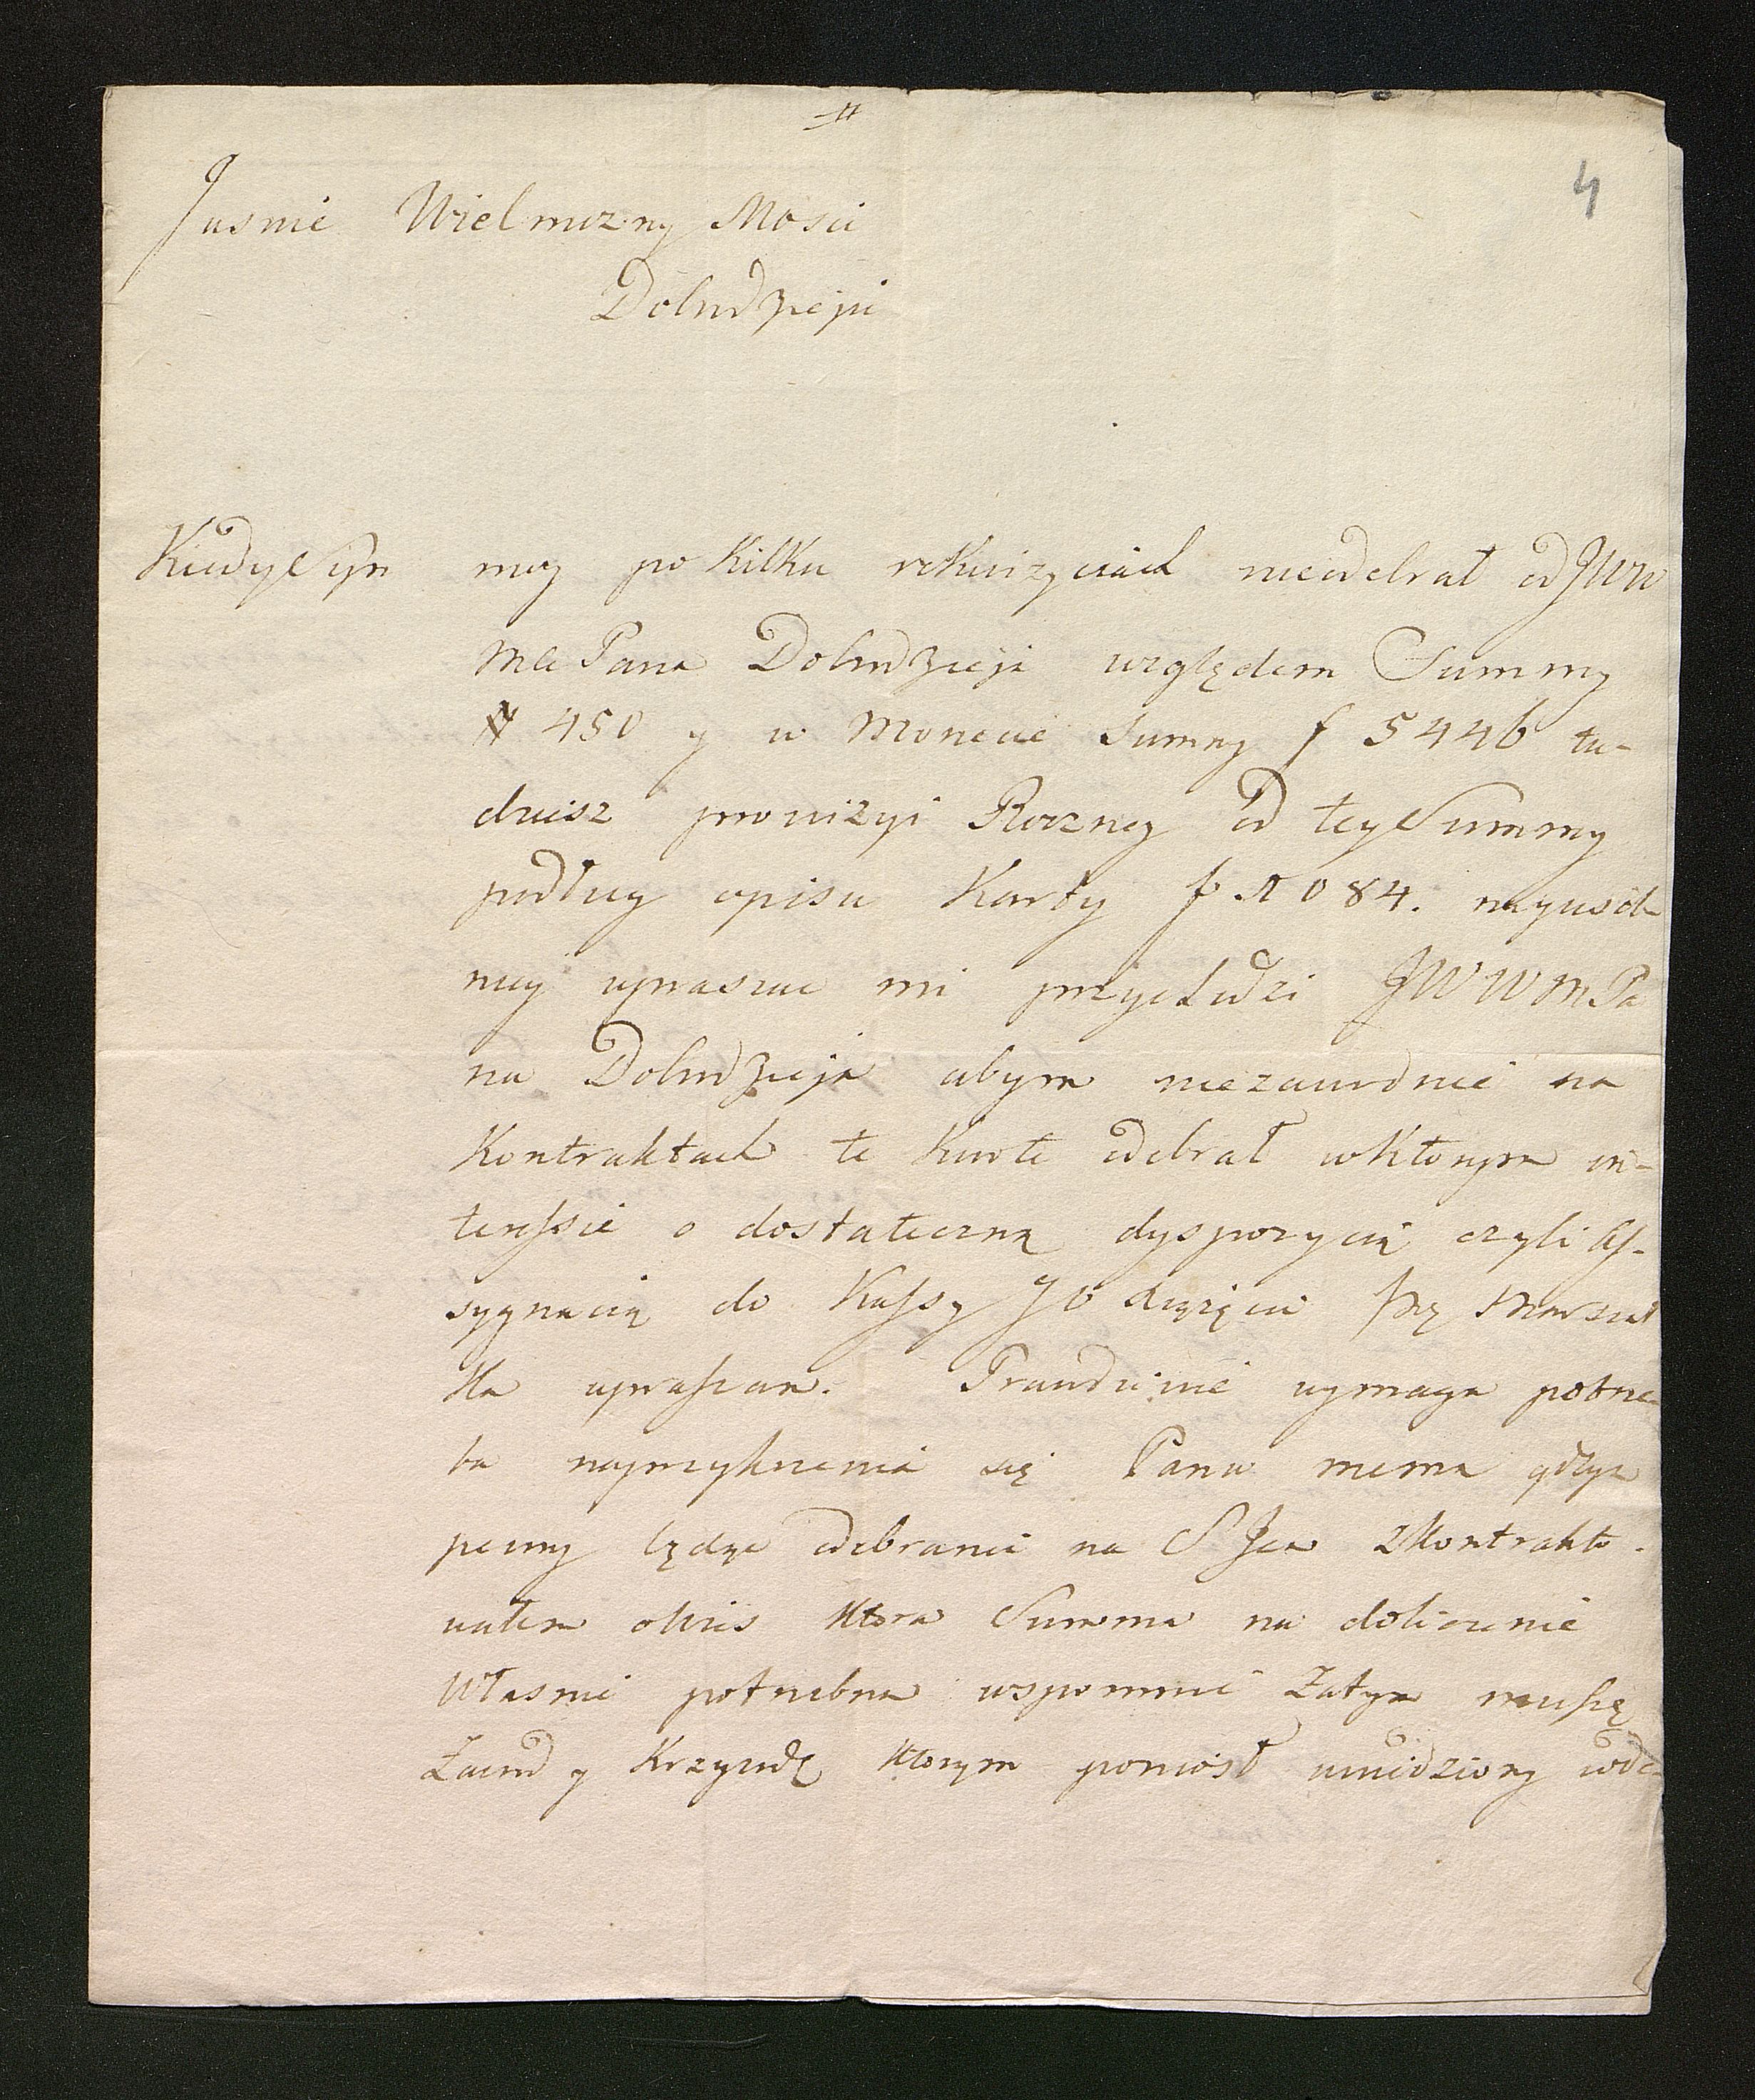 4
Jasnie Wielmozny Mosci
Dobrodzieju
Kiedy Syn moy po kilku rekwizyciach nieodebrał od JWW
Mci Pana Dobrodzieja względem Summy
# 450 y w Monecie Summy f 5446 tu-
dziesz prowizyi Roczney od tey Summy
podług opisu Karty f 1084. nayusil-
niey upraszac mi przychodzi JWW M Pa
na Dobrodzieja abym niezawodnie na
Kontraktach te kwote odebrał w ktorym in-
teressie o dostateczną dyspozycią czyli As-
sygnacią do Kassy JO Xiążęcia Marszał
ka upraszam. Prawdziwie wymaga potrze-
ba naprzykrzenia się Panu memu gdyz
pewny będąc odebrania na S Jan zkontrakto-
wałem ktora Summa na doliczenie
Własnie potrzebna wspomnie Zatym muszę
Zawod y Krzywdę ktorym poniosł